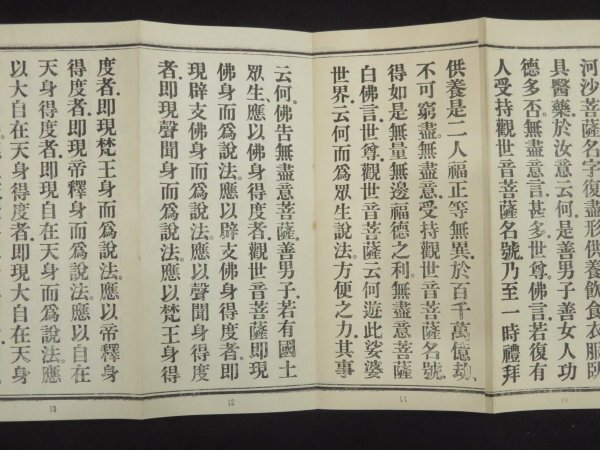 河沙菩薩名字復盡形供養飲食衣服臥
具醫藥於汝意云何是善男子善女人功
德多否無盡意言甚多世尊佛言若復有
人受持觀世音菩薩名號乃至一時禮拜
供養是二人福正等無異於百千萬億劫
不可窮盡無盡意受持觀世音菩薩名號
得如是無量無邊福德之利無盡意菩薩
白佛言世尊觀世音菩薩云何遊此娑婆
世界云何而爲眾生說法方便之力其事
云何佛告無盡意菩薩善男子若有國土
眾生應以佛身得度者觀世音菩薩即現
佛身而爲說法應以辟支佛身得度者即
現辟支佛身而爲說法應以聲聞身得度
者即現聲聞身而爲說法應以梵王身得
度者即現梵王身而爲說法應以帝釋身
得度者即現帝釋身而爲說法應以自在
天身得度者即現自在天身而爲說法應
以大自在天身得度者即現大自在天身
10
11
12
13